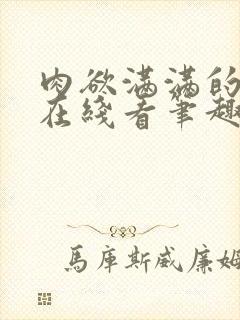 肉欲满满的
在线看笔趣
馬庫斯威廉姆